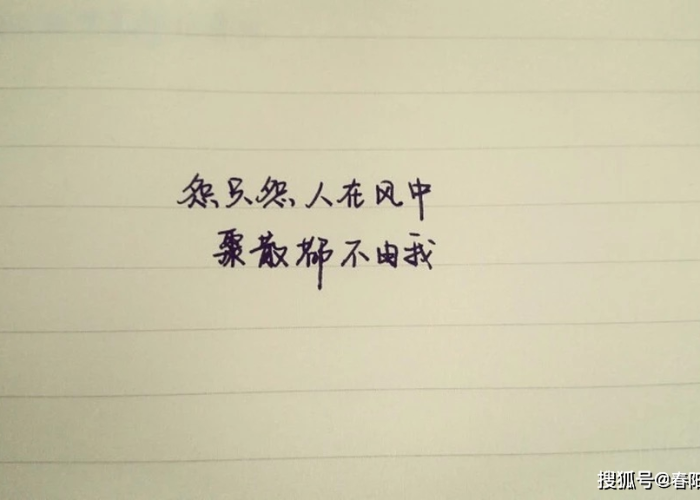 怨只怨人在风中
聚散都不由我
搜狐号@春阳